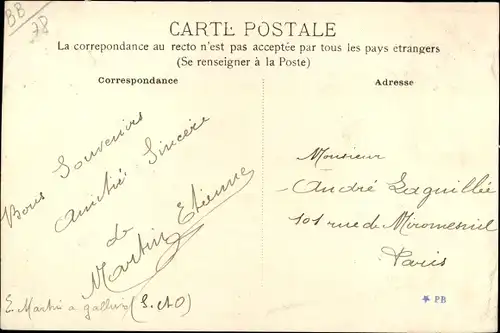 BB
78
CARTE POSTALE
La correpondance au recto n'est pas acceptée par tous les pays étrangers
(Se renseigner à la Poste)
Correspondance
Bons Souvenirs
Amitié Sincère
de
Martin Etienne
E. Martin a galluis (S-&O)
Adresse
Monsieur
André Laguillée
101 rue de Miromesnil
Paris
* PB